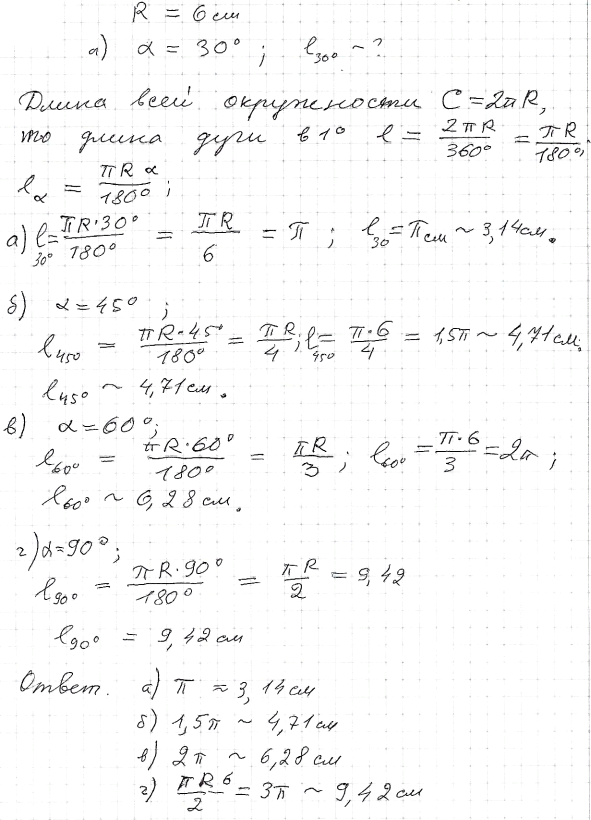 R = 6 см
а) α = 30° ; l₃₀° ~ ?
Длина всей окружности C = 2πR,
то длина дуги в 1° l = 2πR/360° = πR/180°;
lα = πRα/180° ;
а) l₃₀° = πR·30°/180° = πR/6 = π ; l₃₀ = π см ~ 3,14 см.
б) α = 45° ;
l₄₅₀ = πR·45°/180° = πR/4; l₄₅₀ = π·6/4 = 1,5π ~ 4,71 см;
l₄₅° ~ 4,71 см.
в) α = 60°;
l₆₀° = πR·60°/180° = πR/3 ; l₆₀° = π·6/3 = 2π ;
l₆₀° ~ 6,28 см.
г) α = 90° ;
l₉₀° = πR·90°/180° = πR/2 = 9,42
l₉₀° = 9,42 см
Ответ. а) π ≈ 3,14 см
б) 1,5π ~ 4,71 см
в) 2π ~ 6,28 см
г) πR6/2 = 3π ~ 9,42 см